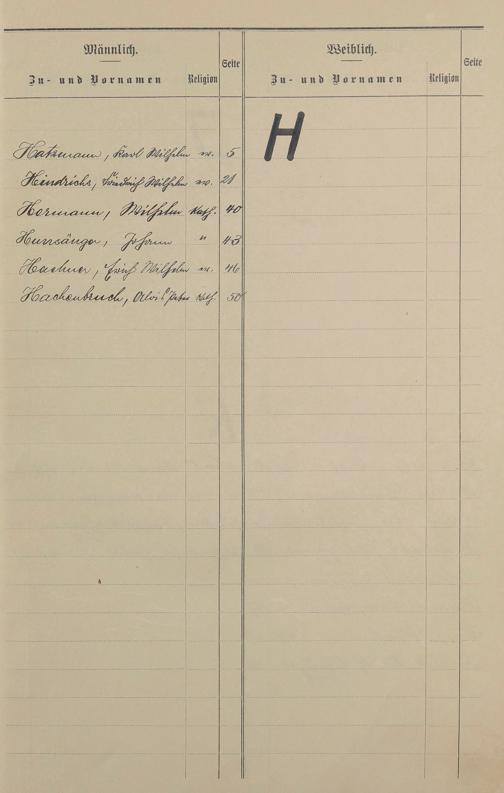 Männlich.
Zu- und Vornamen Religion Seite
Weiblich.
Zu- und Vornamen Religion Seite
H
Hatzmann, Karl Wilhelm ev. 5
Hindrichs, Friedrich Wilhelm ev. 21
Hermann, Wilhelm Kath. 40
Johann " 43
Erich Wilhelm ev. 46
Hachenbruch, Alois Peter Kath. 50